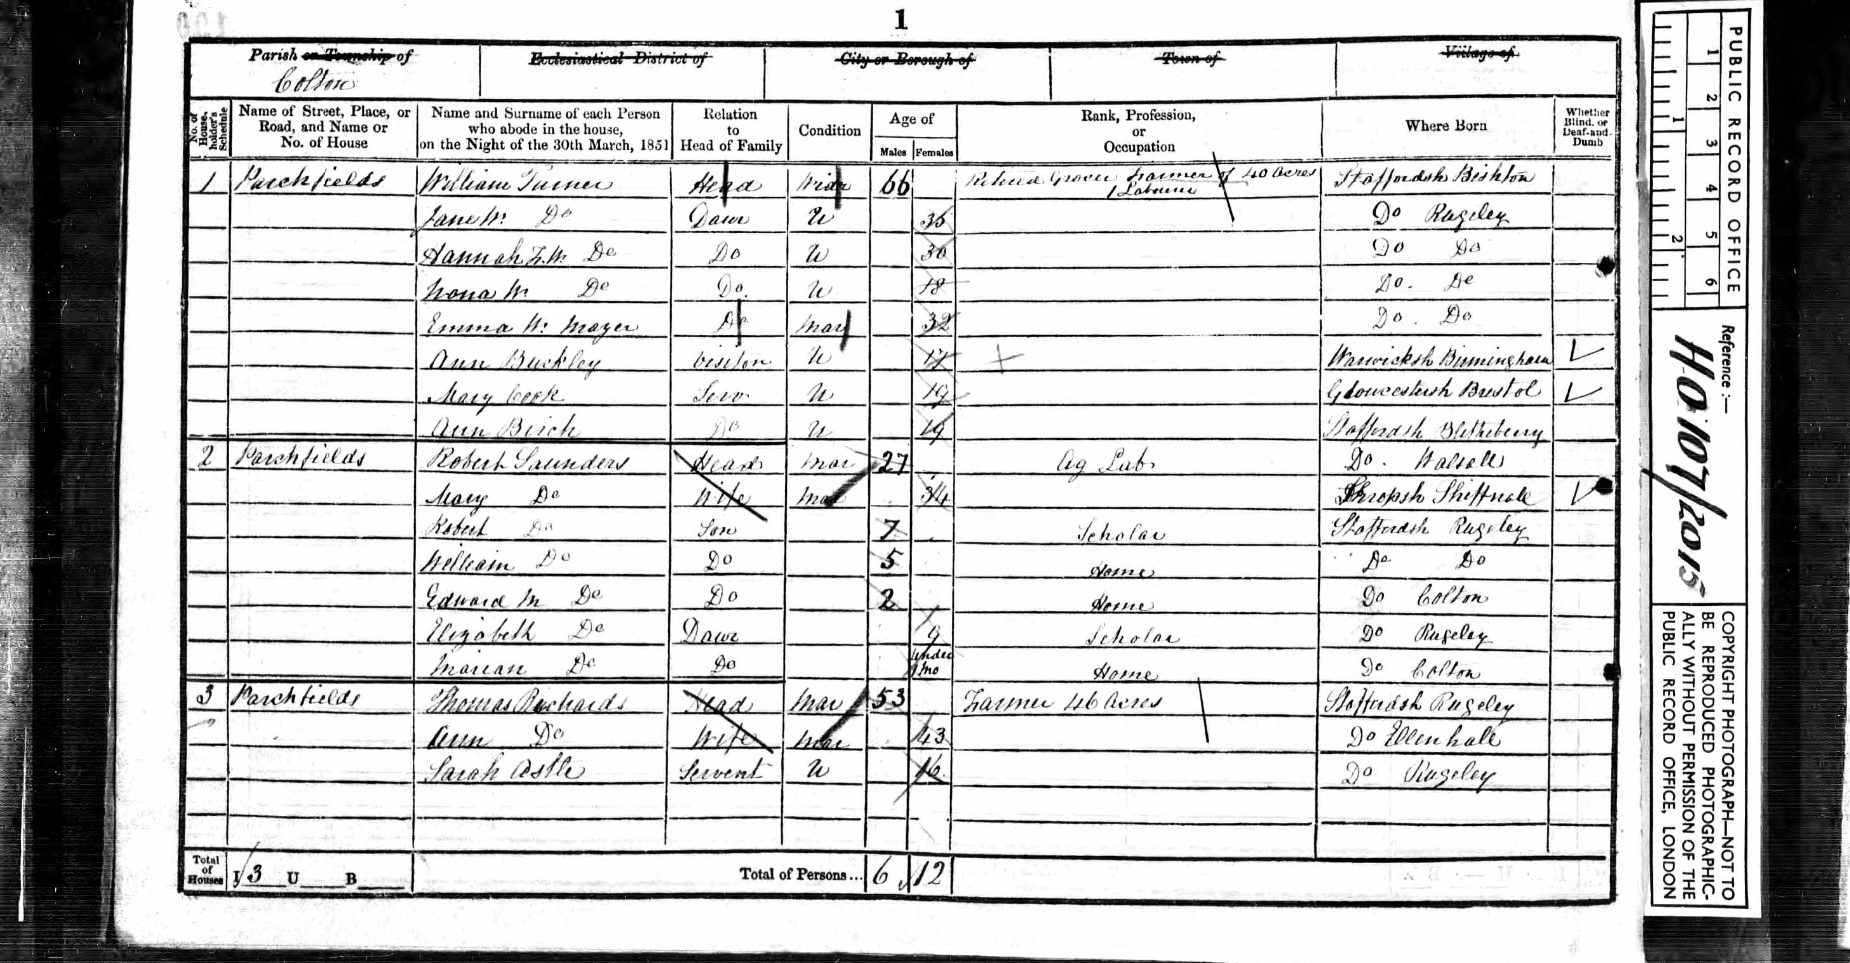 1
Parish or Township of Ecclesiastical District of City or Borough of Town of Village of
Colton
No. of House-holder's Schedule Name of Street, Place, or Road, and Name or No. of House Name and Surname of each Person who abode in the house, on the Night of the 30th March, 1851 Relation to Head of Family Condition Age of Males Females Rank, Profession, or Occupation Where Born Whether Blind, or Deaf-and-Dumb
1 Parchfields William Turner Head Widr 66 Retired Grocer Farmer of 40 Acres Staffordsh Bishton
1 Labourer
Jane W. Do Daur U 35 Do Rugeley
Hannah F.W. Do Do U 30 Do Do
W. Do Do. U 18 Do. Do
Emma W. Mayer Do Mar 32 Do. Do
Ann Buckley Visitor U Warwicksh Birmingham
Mary Cook Serv U 19 Gloucestersh Bristol
Ann Birch Do U 19 Staffordsh Blitheberry
2 Parchfields Robert Saunders Head Mar 27 Ag Lab Do. Walsall
Mary Do Wife Mar 34 Shropsh Shiffnall
Robert Do Son 7 Scholar Staffordsh Rugeley
William Do Do 5 Home Do Do
Edward M Do Do 2 Home Do Colton
Elizabeth Do Daur 9 Scholar Do Rugeley
Marian Do Do under 1 mo Home Do Colton
3 Parchfields Thomas Richards Head Mar 53 Farmer 46 Acres Staffordsh Rugeley
Ann Do Wife Mar 43 Do Ellenhall
Sarah Astle Servent U 16 Do Rugeley
Total of Houses I 3 U B Total of Persons... 6 12
PUBLIC RECORD OFFICE
1 2 3 4 5 6
1 2
Reference :—
HO 107/2015
COPYRIGHT PHOTOGRAPH—NOT TO
BE REPRODUCED PHOTOGRAPHIC-
ALLY WITHOUT PERMISSION OF THE
PUBLIC RECORD OFFICE, LONDON